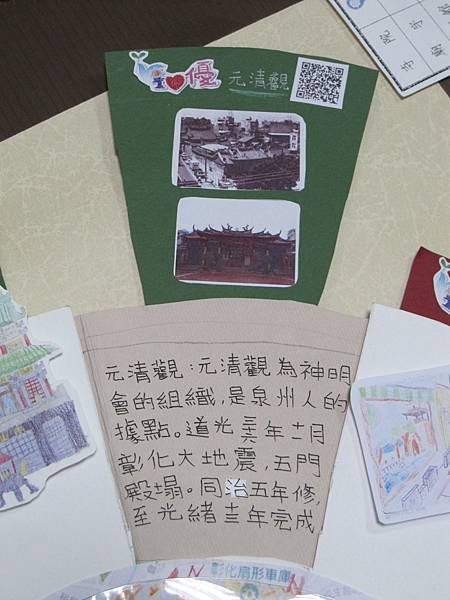 優 元清觀
元清觀:元清觀為神明
會的組織,是泉州人的
據點。道光二十八年十一月
彰化大地震,五門
殿塌。同治五年修,
至光緒十三年完成
彰化扇形車庫